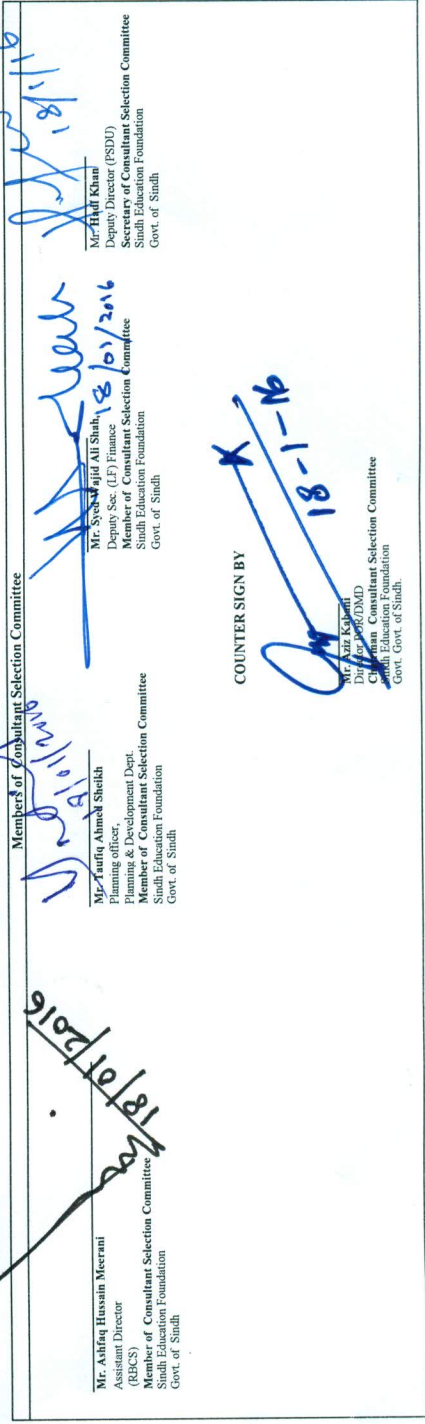 Members of Consultant Selection Committee
18/01/2016
Mr. Ashfaq Hussain Meerani
Assistant Director
(RBCS)
Member of Consultant Selection Committee
Sindh Education Foundation
Govt. of Sindh
/01/2016
Mr. Taufiq Ahmed Sheikh
Planning officer,
Planning & Development Dept.
Member of Consultant Selection Committee
Sindh Education Foundation
Govt. of Sindh
Mr. Syed Wajid Ali Shah, 18/01/2016
Deputy Sec. (LF) Finance
Member of Consultant Selection Committee
Sindh Education Foundation
Govt. of Sindh
18/1/16
Mr. Hadi Khan
Deputy Director (PSDU)
Secretary of Consultant Selection Committee
Sindh Education Foundation
Govt. of Sindh
COUNTER SIGN BY
18-1-16
Mr. Aziz Kabani
Director /DMD
Chairman Consultant Selection Committee
Sindh Education Foundation
Govt. Govt. of Sindh.